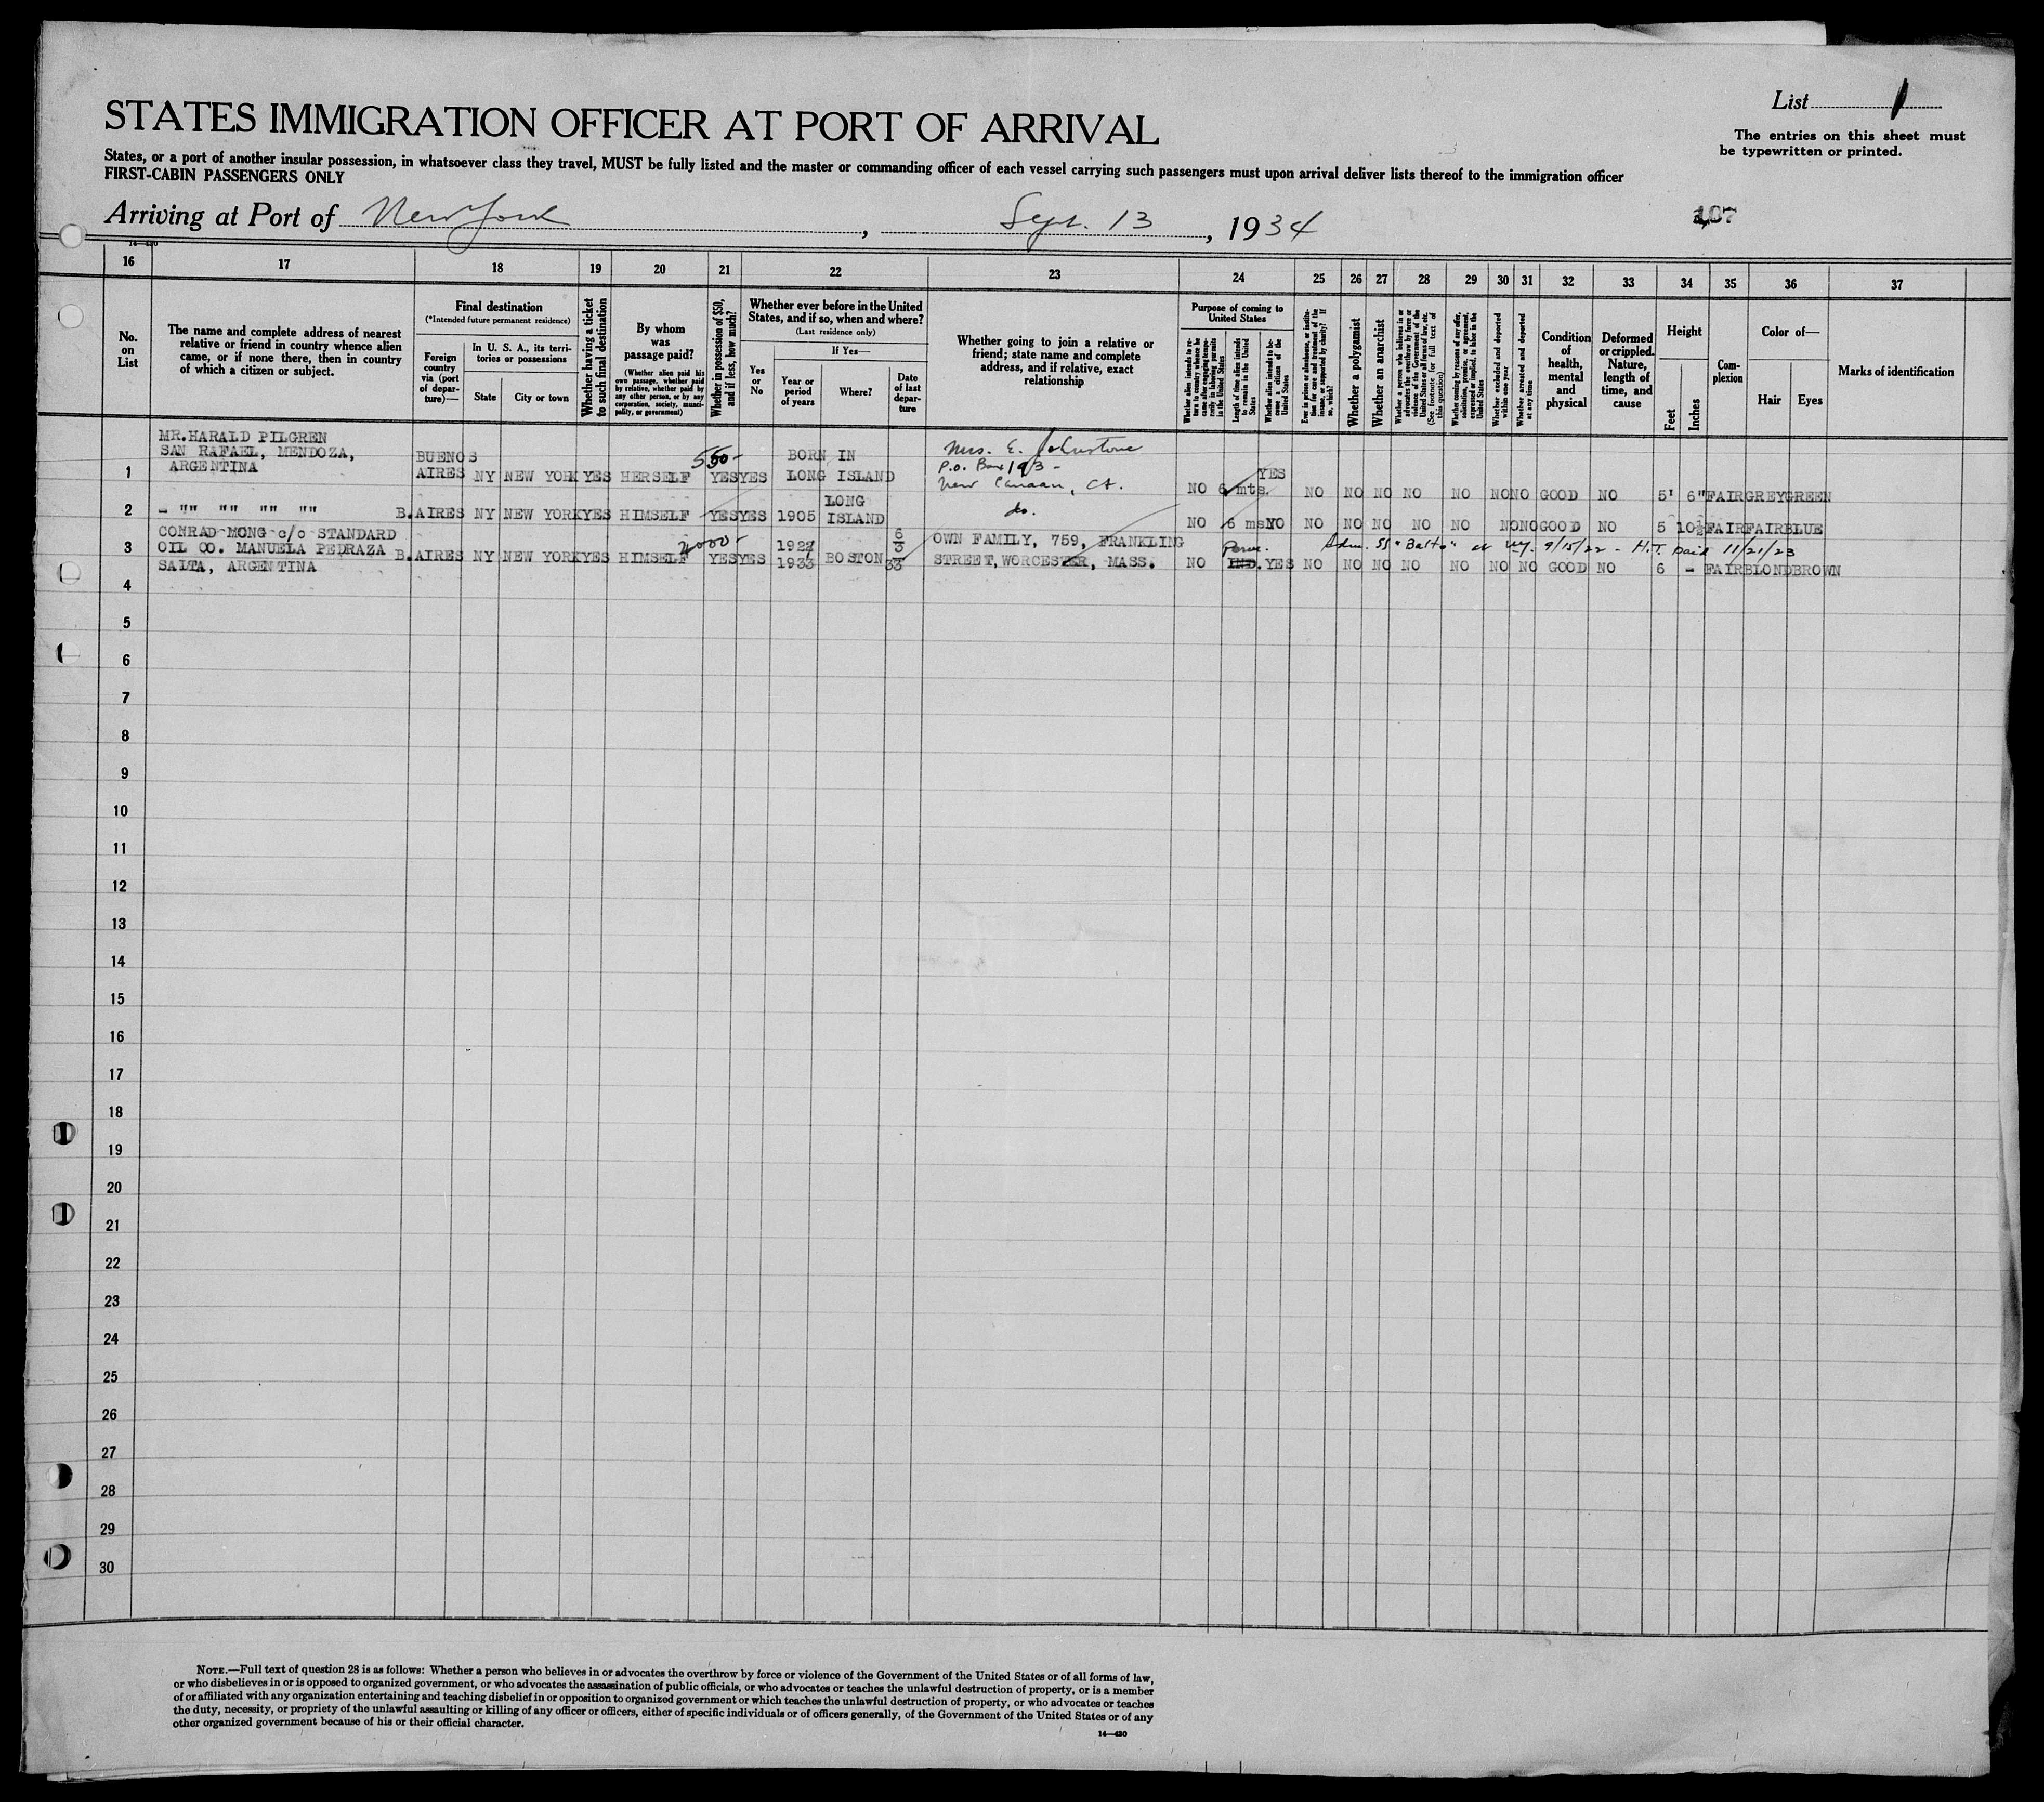 STATES IMMIGRATION OFFICER AT PORT OF ARRIVAL
List 1
The entries on this sheet must
be typewritten or printed.
States, or a port of another insular possession, in whatsoever class they travel, MUST be fully listed and the master or commanding officer of each vessel carrying such passengers must upon arrival deliver lists thereof to the immigration officer
FIRST-CABIN PASSENGERS ONLY
Arriving at Port of New York, Sept. 13, 1934
107
16 17 18 19 20 21 22 23 24 25 26 27 28 29 30 31 32 33 34 35 36 37
No. on List
The name and complete address of nearest
relative or friend in country whence alien
came, or if none there, then in country
of which a citizen or subject.
Final destination
(*Intended future permanent residence)
Foreign country via (port of departure)—
In U. S. A., its territories or possessions
State
City or town
Whether having a ticket to such final destination
By whom was passage paid?
(Whether alien paid his own passage, whether paid by relative, whether paid by any other person, or by any corporation, society, municipality, or government)
Whether in possession of $50, and if less, how much?
Whether ever before in the United States, and if so, when and where?
(Last residence only)
Yes or No
If Yes—
Year or period of years
Where?
Date of last departure
Whether going to join a relative or
friend; state name and complete
address, and if relative, exact
relationship
Purpose of coming to United States
Length of time alien intends to remain in the United States
Whether alien intends to become a citizen of the United States
Whether a polygamist
Whether an anarchist
(See footnote for full text of this question)
Whether excluded and deported within one year
Whether arrested and deported at any time
Condition of health, mental and physical
Deformed or crippled. Nature, length of time, and cause
Height
Feet
Inches
Complexion
Color of—
Hair
Eyes
Marks of identification
MR.HARALD PILGREN
SAN RAFAEL, MENDOZA,
ARGENTINA
1 BUENOS AIRES NY NEW YORK YES HERSELF 550- YES YES BORN IN LONG ISLAND Mrs. E. Johnstone P.O. Box 193 - New Canaan, Ct. NO 6 mts. YES NO NO NO NO NO NO NO GOOD NO 5' 6" FAIR GREY GREEN
2 - "" "" "" "" B.AIRES NY NEW YORK YES HIMSELF YES YES 1905 LONG ISLAND do. NO 6 ms NO NO NO NO NO NO NO NO GOOD NO 5 10½ FAIR FAIR BLUE
CONRAD MONG c/o STANDARD
3 OIL CO. MANUELA PEDRAZA B.AIRES NY NEW YORK YES HIMSELF 2000- YES YES 1922 1933 BOSTON 6/3 33 OWN FAMILY, 759, FRANKLING
SALTA, ARGENTINA STREET, WORCESTER, MASS. NO Perm. IND. YES NO NO NO NO NO NO NO GOOD NO 6 - FAIR BLOND BROWN
Adm. SS "Balto" at NY. 9/15/22 - H.T. paid 11/21/23
4
5
6
7
8
9
10
11
12
13
14
15
16
17
18
19
20
21
22
23
24
25
26
27
28
29
30
NOTE.—Full text of question 28 is as follows: Whether a person who believes in or advocates the overthrow by force or violence of the Government of the United States or of all forms of law,
or who disbelieves in or is opposed to organized government, or who advocates the assassination of public officials, or who advocates or teaches the unlawful destruction of property, or is a member
of or affiliated with any organization entertaining and teaching disbelief in or opposition to organized government or which teaches the unlawful destruction of property, or who advocates or teaches
the duty, necessity, or propriety of the unlawful assaulting or killing of any officer or officers, either of specific individuals or of officers generally, of the Government of the United States or of any
other organized government because of his or their official character.
14—420